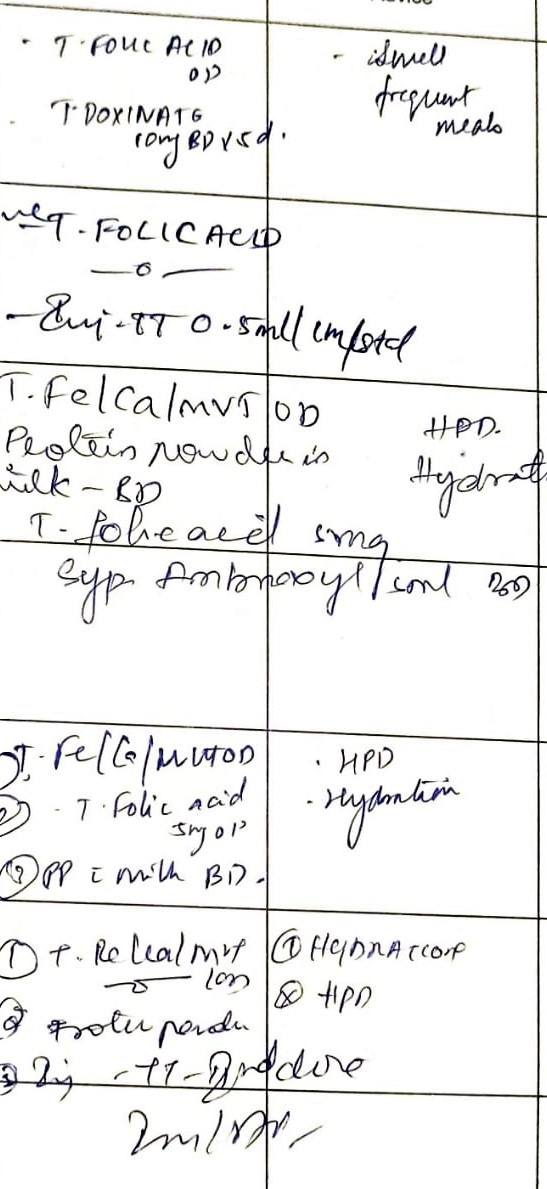 - T. FOLIC ACID
OD
T. DOXINATE
10mg BD x 5d.
- Small
frequent
meals
T. FOLIC ACID
— o —
- Inj. TT 0.5ml/im/std
T. Fe/Ca/MVT OD
Protein powder in
milk - BD
T. folic acid 5mg
HPD.
Hydrat
Syp. Ambroxyl
T. Fe/Ca/MVT OD
2) - T. Folic acid
5mg OD
3) PP c milk BD.
- HPD
- Hydration
1) T. Fe/Ca/MVT
2) Protein powder
3) Inj - TT - 2nd dose
1) HYDRATION
2) HPD